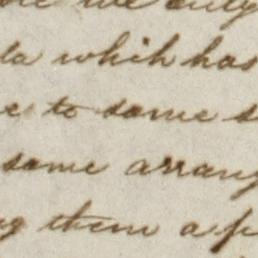 we only
which has
to some
same arrang
them a